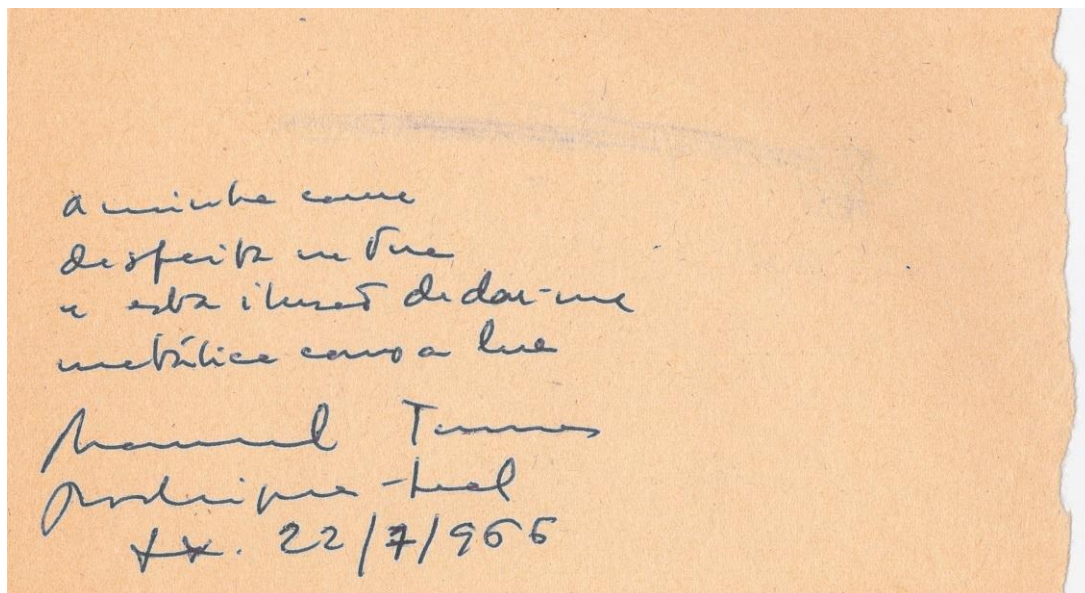 a minha carne
desfeita na tua
e esta ilusão de dar-me
metálica como a lua
Manuel Tavares
Rodrigues-Leal
Lx. 22/7/966